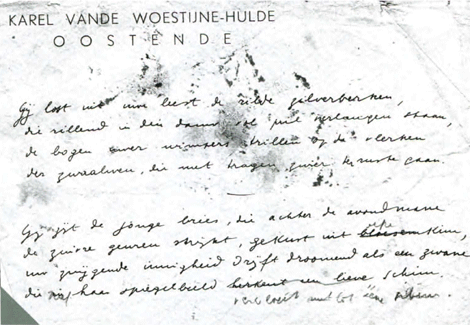 KAREL VANDE WOESTIJNE-HULDE
OOSTENDE
Gij lost uit uwe leest de zilde zilverberken,
die rillend in den damp vol stil verlangen staan,
de bogen uwer wimpers trillen op de vlerken
der zwaluwen, die met tragen zwier ter ruste gaan.
Gij zijt de jonge bries, die achter de avondmane
de zuivre geuren strijkt, gekust uit bloesemkim,
uw zwijgende innigheid drijft droomend als een zwane
die haar spiegelbeeld herkent een lieve schim.